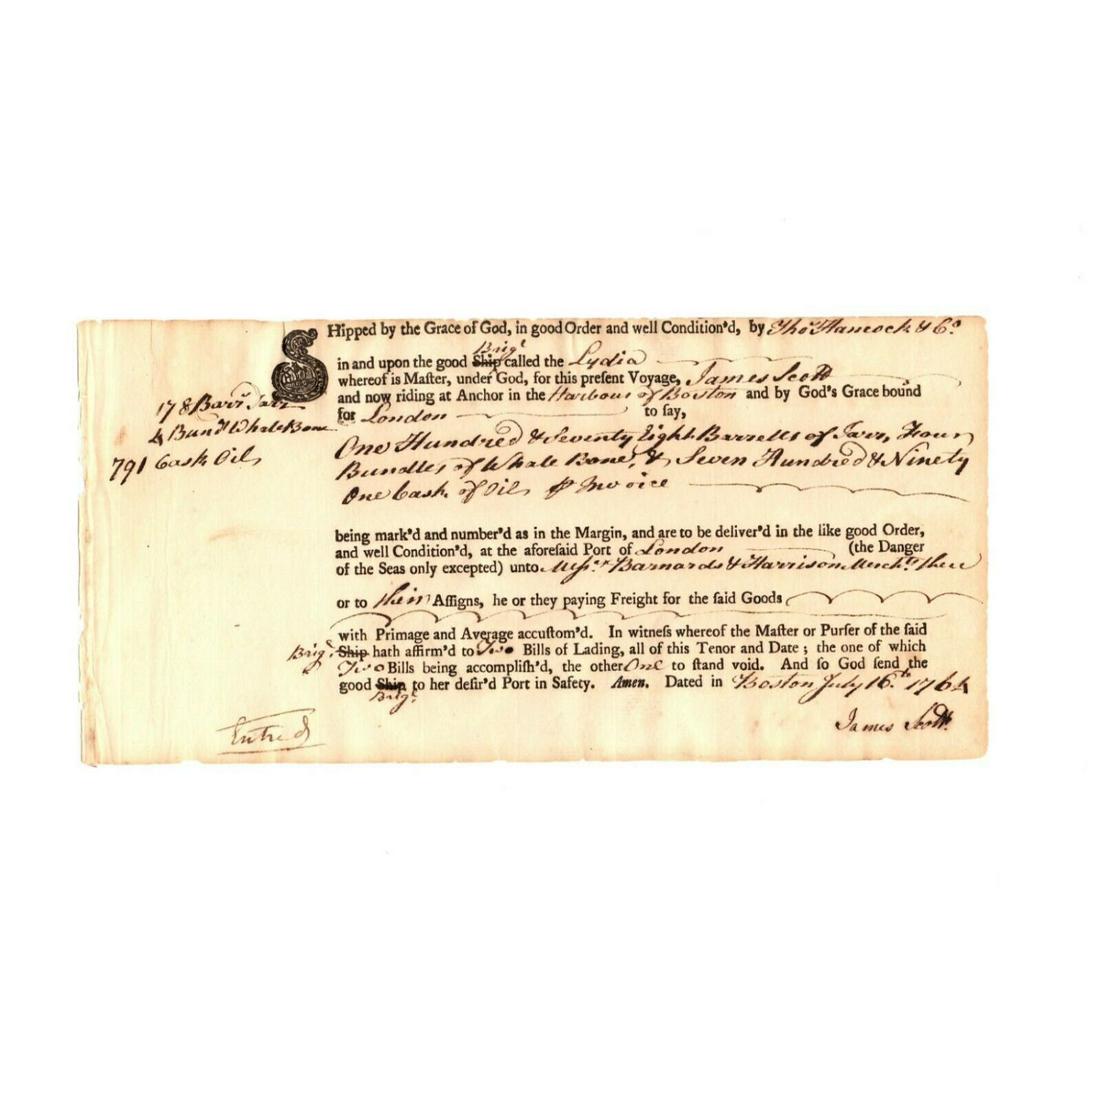 SHipped by the Grace of God, in good Order and well Condition'd, by Thos Hancock & Co.
in and upon the good Ship Brigt. called the Lydia
whereof is Maſter, under God, for this preſent Voyage, James Scott
and now riding at Anchor in the Harbour of Boston and by God's Grace bound
for London to ſay,
178 Barrs Tarr
4 Bunds Whale Bone
791 Cask Oil
One Hundred & Seventy Eight Barrells of Tarr, Four
Bundles of Whale Bone, & Seven Hundred & Ninety
One Cask of Oil ⅌ Invoice
being mark'd and number'd as in the Margin, and are to be deliver'd in the like good Order,
and well Condition'd, at the aforeſaid Port of London (the Danger
of the Seas only excepted) unto Meſsrs. Barnards & Harrison Merchts. there
or to their Aſſigns, he or they paying Freight for the ſaid Goods
with Primage and Average accuſtom'd. In witneſs whereof the Maſter or Purſer of the ſaid
Brigt. Ship hath affirm'd to Two Bills of Lading, all of this Tenor and Date; the one of which
Two Bills being accompliſh'd, the other One to ſtand void. And ſo God ſend the
good Ship Brigt. to her deſir'd Port in Safety. Amen. Dated in Boston July 16th. 1764
James Scott
Entred